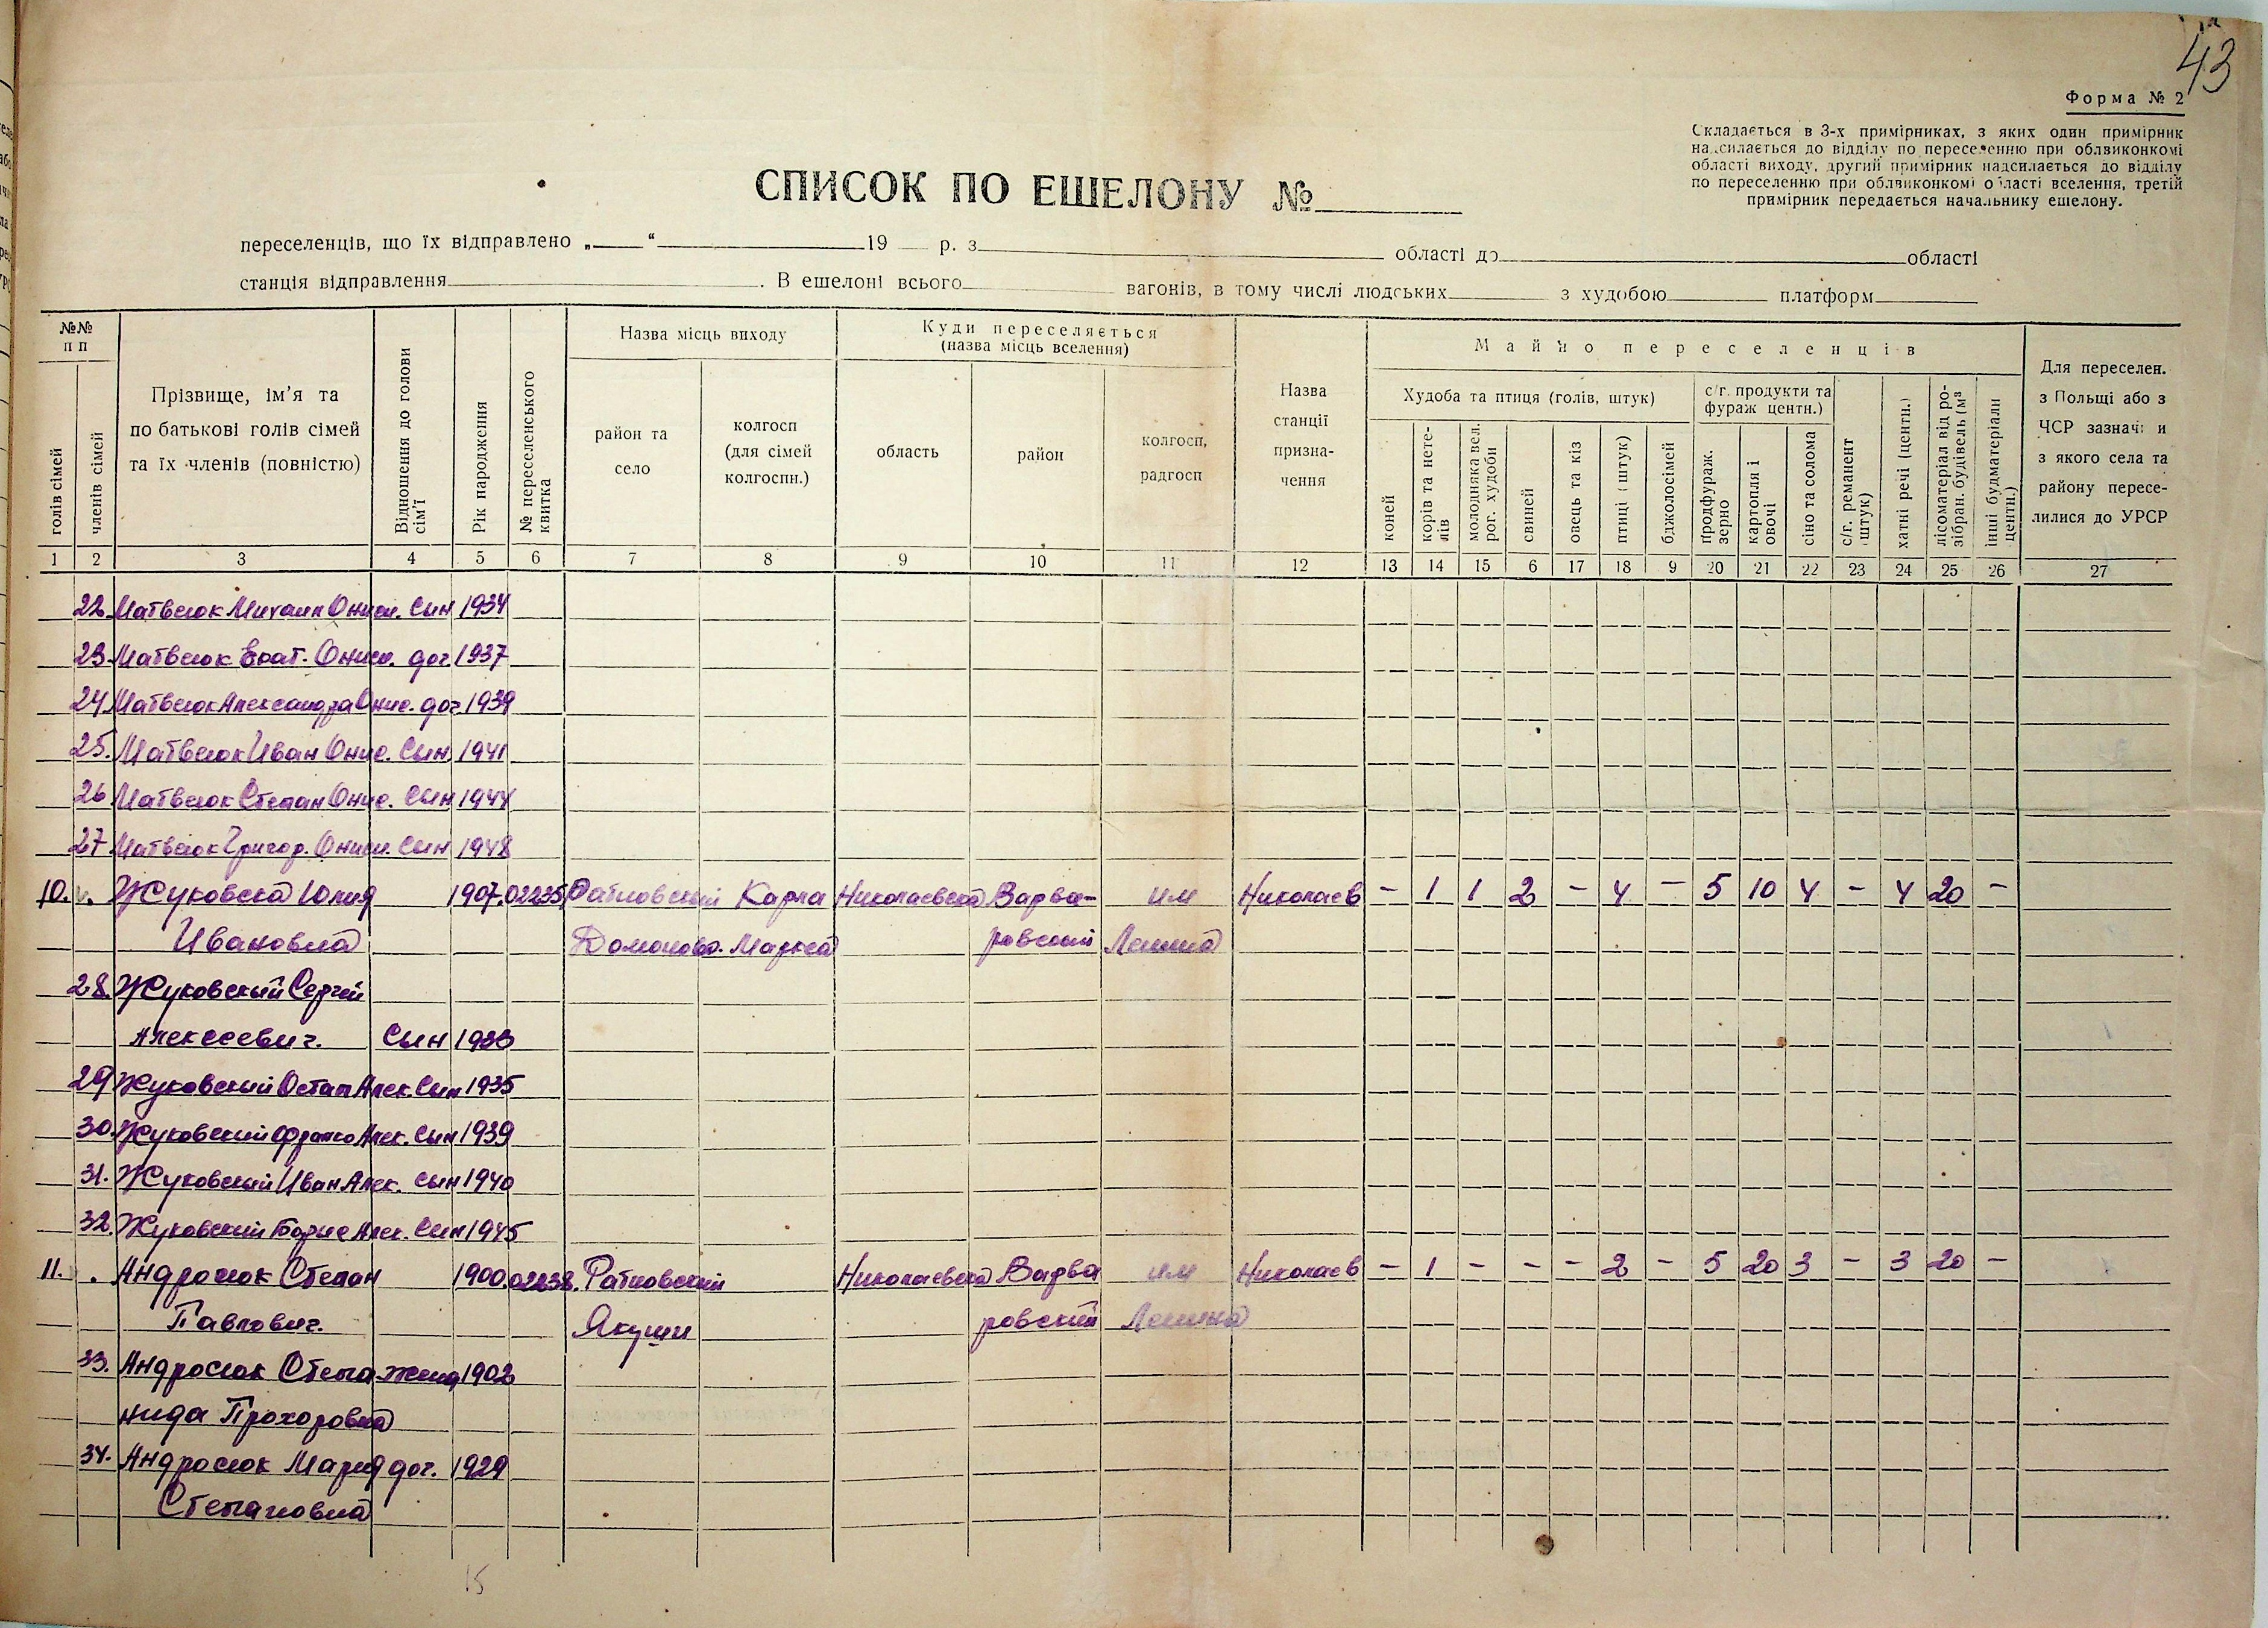 43
Форма № 2
Складається в 3-х примірниках, з яких один примірник
надсилається до відділу по переселенню при облвиконкомі
області виходу, другий примірник надсилається до відділу
по переселенню при облвиконкомі області вселення, третій
примірник передається начальнику ешелону.
СПИСОК ПО ЕШЕЛОНУ №
переселенців, що їх відправлено „ “ 19 р. з області до області
станція відправлення . В ешелоні всього вагонів, в тому числі людських з худобою платформ
№№ п п
голів сімей
членів сімей
Прізвище, ім'я та
по батькові голів сімей
та їх членів (повністю)
Відношення до голови сім'ї
Рік народження
№ переселенського квитка
Назва місць виходу
район та село
колгосп (для сімей колгоспн.)
Куди переселяється
(назва місць вселення)
область
район
колгосп, радгосп
Назва станції призна- чення
Майно переселенців
Худоба та птиця (голів, штук)
коней
корів та нете- лів
молодняка вел. рог. худоби
свиней
овець та кіз
птиці (штук)
бджолосімей
с/г. продукти та фураж центн.)
продфураж. зерно
картопля і овочі
сіно та солома
с/г. реманент (штук)
хатні речі (центн.)
лісоматеріал від ро- зібран. будівель (м³
інші будматеріали центн.)
Для переселен.
з Польщі або з
ЧСР зазначи и
з якого села та
району пересе-
лилися до УРСР
1 2 3 4 5 6 7 8 9 10 11 12 13 14 15 6 17 18 9 20 21 22 23 24 25 26 27
22. Матвеюк Михаил Ониси. Сын 1934
23. Матвеюк Екат. Ониси. доч. 1937
24 Матвеюк Александра Онис. доч. 1939
25. Матвеюк Иван Онис. Сын 1941
26 Матвеюк Степан Онис. Сын 1944
27 Матвеюк Григор. Ониси. Сын 1948
10. Жуковска Юлия 1907 02235 Ратновский Карла Николаевска Варва- им Николаев - 1 1 2 - 4 - 5 10 4 - 4 20 -
Ивановна Домоново. Маркса ровский Ленина
28. Жуковский Сергей
Алексеевич. Сын 1933
29 Жуковский Остап Алек. Сын 1935
30. Жуковский Франко Алек. Сын 1939
31. Жуковский Иван Алек. Сын 1940
32. Жуковский Борис Алек. Сын 1945
11. Андросюк Степан 1900. 02238. Ратновский Николаевска Варва им Николаев - 1 - - - 2 - 5 20 3 - 3 20 -
Павлович. Якуши ровский Ленина
33. Андросюк Степа- жена 1902
нида Прохоровна
34. Андросюк Мария доч. 1929
Степановна
15